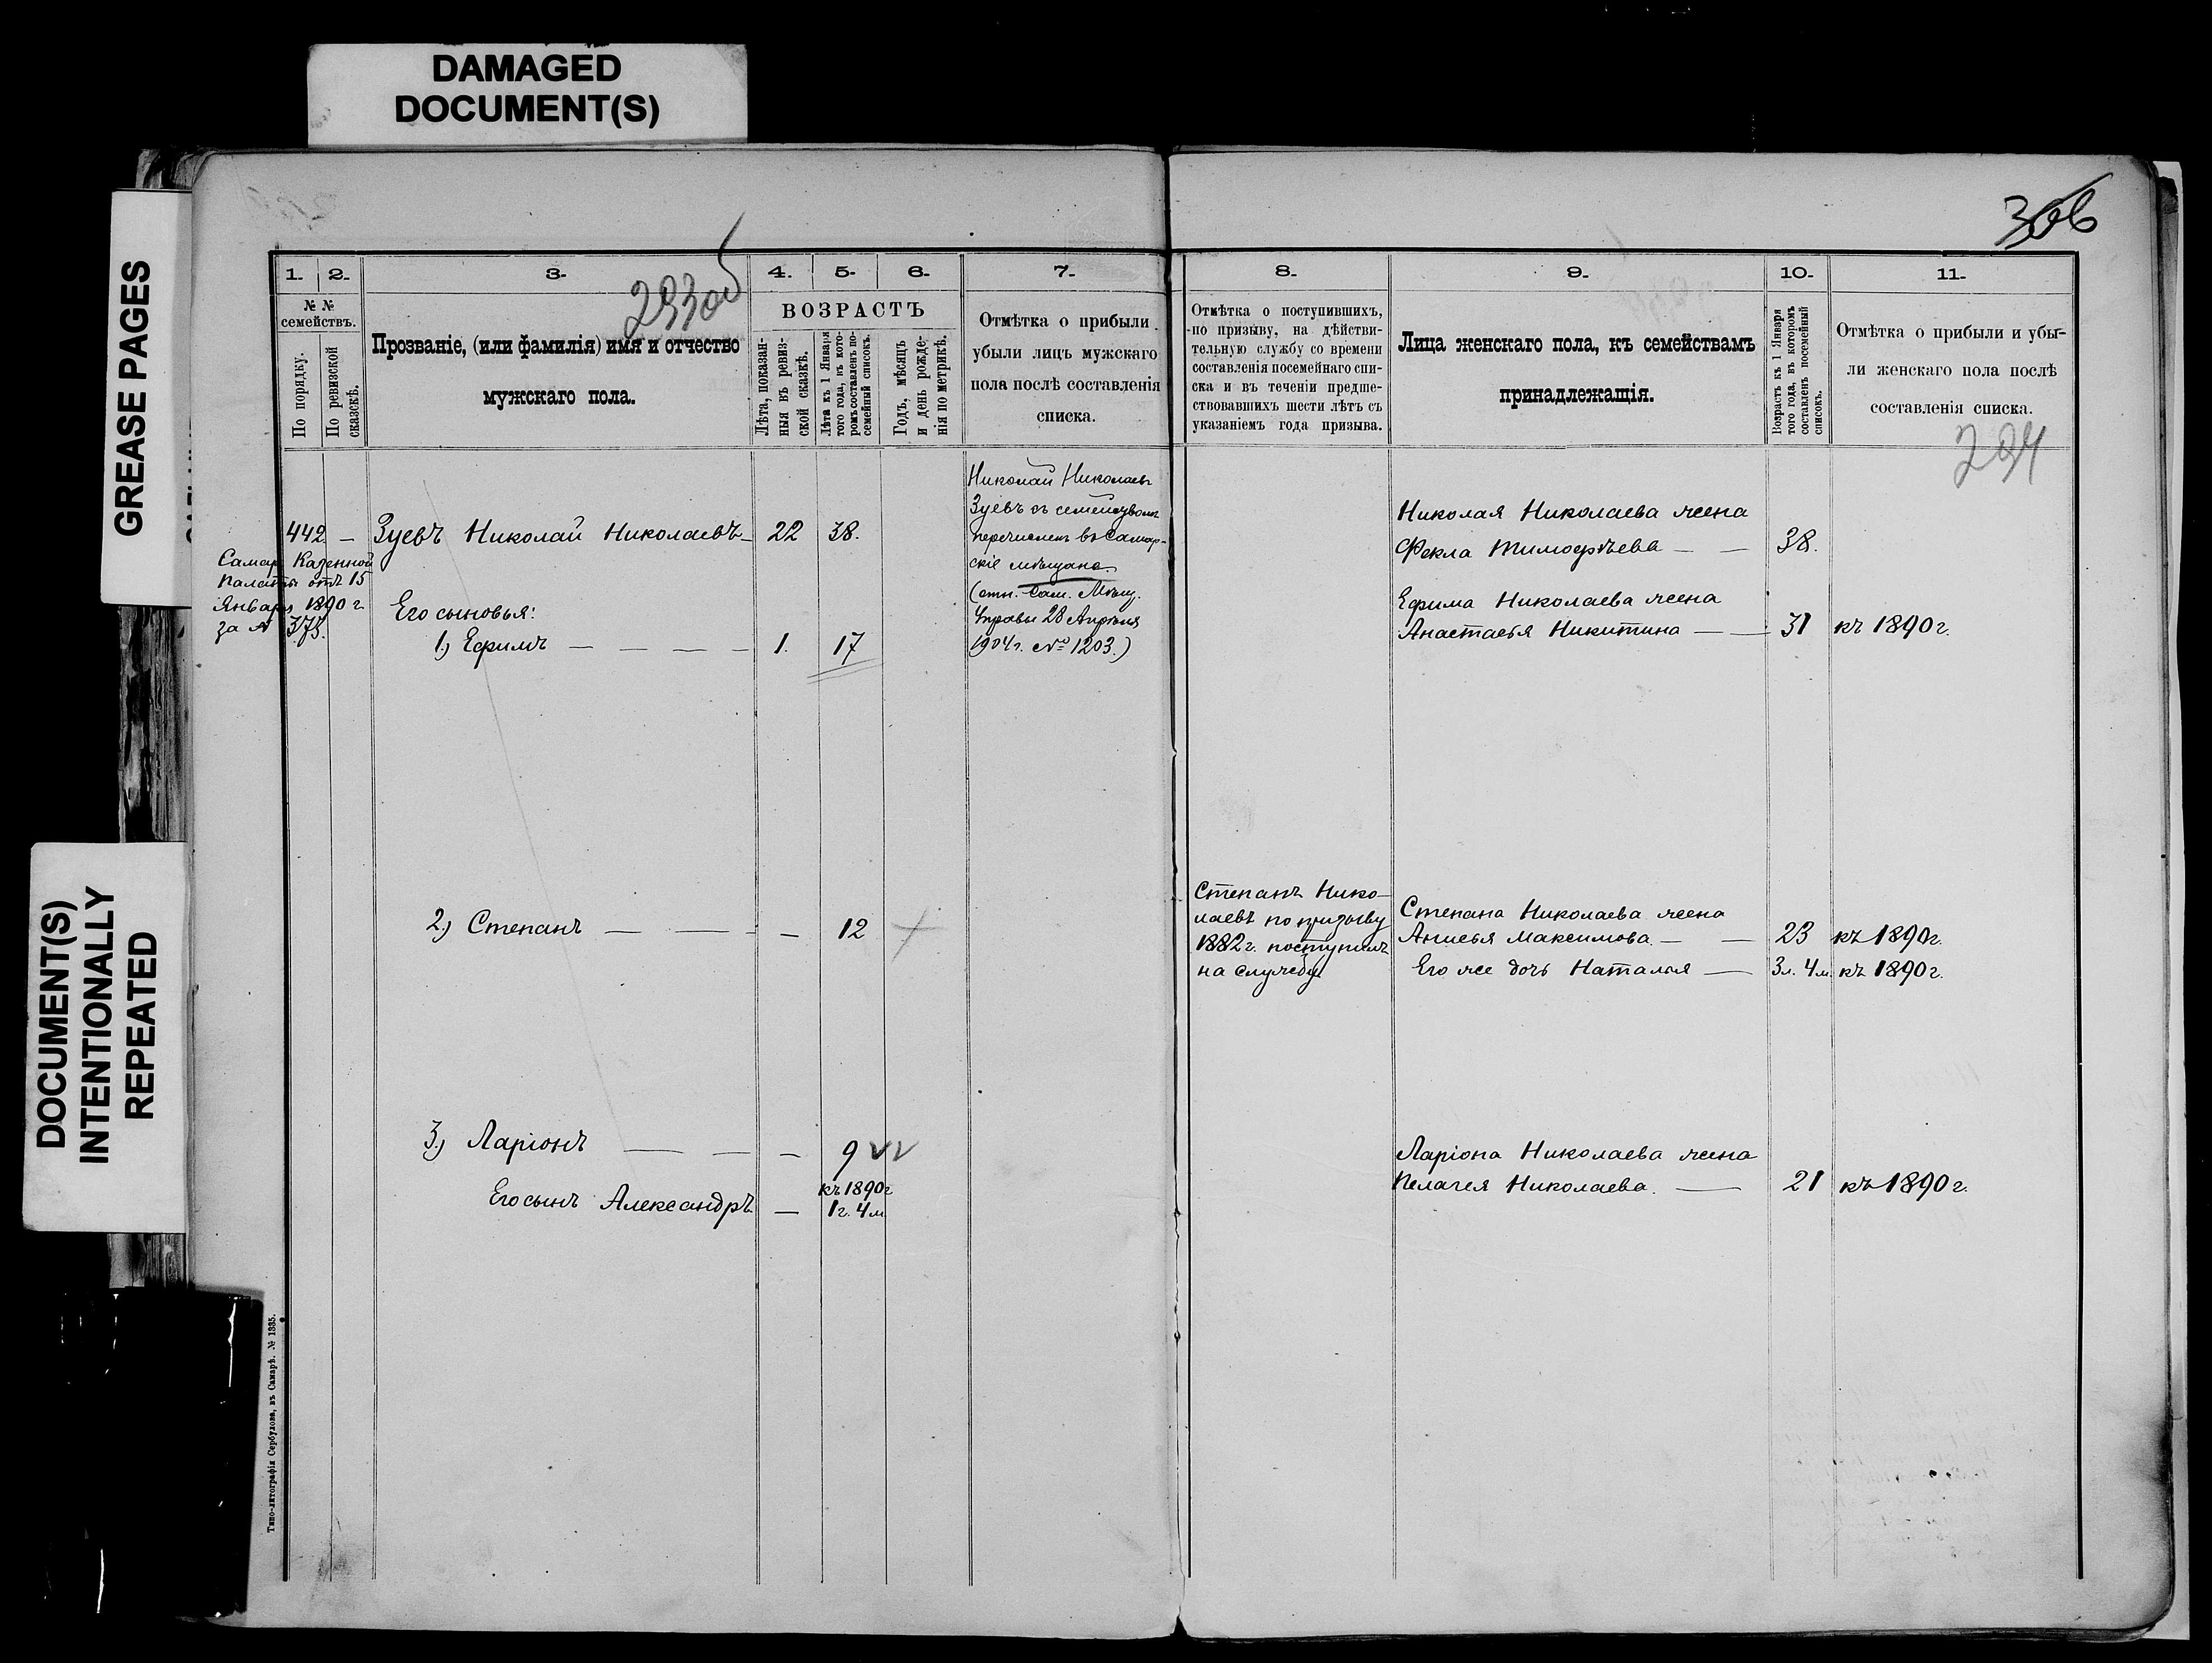 DAMAGED
DOCUMENT(S)
GREASE PAGES
DOCUMENT(S)
INTENTIONALLY
REPEATED
306
293об
1. 2. 3. 4. 5. 6. 7. 8. 9. 10. 11.
№ №
семействъ.
По порядку.
По ревизской
сказкѣ.
Прозваніе, (или фамилія) имя и отчество
мужскаго пола.
ВОЗРАСТЪ
Лѣта, показан-
ныя въ ревиз-
ской сказкѣ.
Лѣта къ 1 Января
того года, въ кото-
ромъ составленъ по-
семейный списокъ.
Годъ, мѣсяцъ
и день рожде-
нія по метрикѣ.
Отмѣтка о прибыли
убыли лицъ мужскаго
пола послѣ составленія
списка.
Отмѣтка о поступившихъ,
по призыву, на дѣйстви-
тельную службу со времени
составленія посемейнаго спи-
ска и въ теченіи предше-
ствовавшихъ шести лѣтъ съ
указаніемъ года призыва.
Лица женскаго пола, къ семействамъ
принадлежащія.
Возрастъ къ 1 Января
того года, въ которомъ
составленъ посемейный
списокъ.
Отмѣтка о прибыли и убы-
ли женскаго пола послѣ
составленія списка.
294
442 — Зуевъ Николай Николаевъ — 22 38.
Самар. Казенной
Палаты отъ 15
Января 1890 г.
за № 375.
Николай Николаевъ
Зуевъ съ семействомъ
перечисленъ въ Самар-
скіе мѣщане.
(отн. Сам. Мѣщ.
Управы 28 Апрѣля
1904 г. № 1203.)
Николая Николаева жена
Фекла Тимофѣева — — 38.
Его сыновья:
1.) Ефимъ — — — — 1. 17
Ефима Николаева жена
Анастасья Никитина — — 31 къ 1890 г.
2.) Степанъ — — — — 12
Степанъ Нико-
лаевъ по призыву
1882 г. поступилъ
на службу
Степана Николаева жена
Анисья Максимова — — 23 къ 1890 г.
Его же дочь Наталья — 3 л. 4 м. къ 1890 г.
3.) Ларіонъ — — — 9
Его сынъ Александръ — къ 1890 г
1 г. 4 м
Ларіона Николаева жена
Пелагея Николаева. — 21 къ 1890 г.
Типо-литографія Сербулова, въ Самарѣ. № 1335.